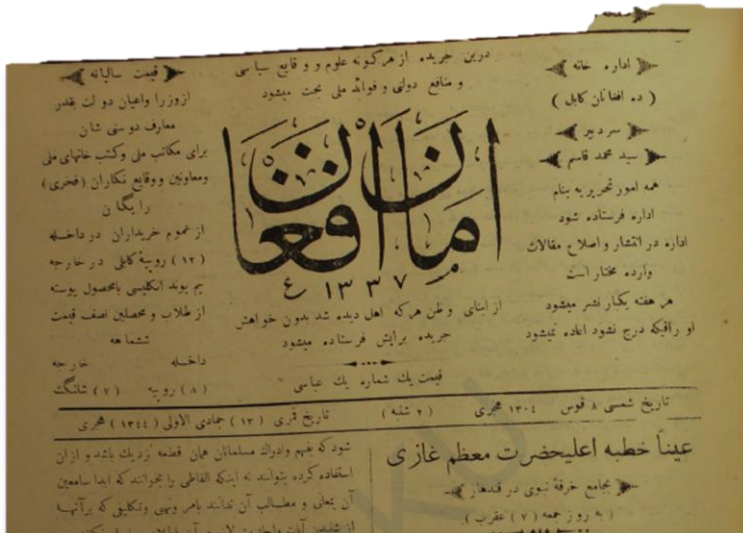 اداره خانه
( ده افغانان کابل )
سر دبیر
سید محمد قاسم
همه امور تحریر یه بنام
اداره فرستاده شود
اداره در انتشار و اصلاح مقالات
وارده مختار است
هر هفته یکبار نشر میشود
او راقیکه درج نشود اعاده نمیشود
درین جریده از هر کونه علوم و و قایع سیاسی
و منافع دولتی و فوائد ملی بحث میشود
امان افغان
۱۳۳۷ ع
از ابنای وطن هرکه اهل دیده شد بدون خواهش
جریده برایش فرستاده میشود
قیمت یك شماره یك عباسی
قیمت سالیانه
از وزرا واعیان دولت بقدر
معارف دوستی شان
برای مکاتب ملی وکتب خانهای ملی
ومعاونین ووقایع نکاران (فخری)
رایکان
از عموم خریداران در داخله
(۱۲) روپیهٔ کابلی در خارجه
یم پوند انکلیسی بامحصول پوسته
از طلاب و محصلین نصف قیمت
ششماهه
داخله خارجه
(۸) روپیه (۷) شلنگ
تاریخ شمسی ۸ قوس ۱۳۰۴ هجری (۲ شنبه) تاریخ قمری (۱۳) جمادی الاولی (۱۳۴۴) هجری
عیناً خطبه اعلیحضرت معظم غازی
بجامع خرقهٔ نبوی در قندهار
( به روز جمعه (۷) عقرب )
شود که بفهم وادراك مسلمانان همان قطعه نزدیك باشد و ازان
استفاده کرده بتوانند نه اینکه الفاظی را بخوانند که ابدا سامعین
آن بمعانی و مطالب آن ندانند بامر ونهی وتکلیفی که برآنها